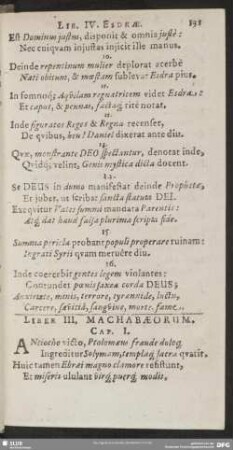 LIB. IV. ESDRÆ. 191
Est Dominus justus, disponit & omnia justè:
Nec cuiqvam injustas injicit ille manus.
10.
Deinde repentinum mulier deplorat acerbè
Nati obitum, & mœstam sublevat Esdra pius.
11.
In somnoq; Aqvilam regnatricem videt Esdras:
Et caput, & pennas, factaq; ritè notat.
12.
Inde figuratos Reges & Regna recenset,
De qvibus, heu! Daniel dixerat ante diu.
13.
Qvæ, monstrante DEO spectantur, denotat inde,
Qvidq; velint, Genti mystica dicta docent.
14.
Se DEUS in dumo manifestat deinde Prophetæ,
Et jubet, ut scribat sancta statuta DEI.
Exeqvitur Vates summi mandata Parentis:
Atq; dat haud falsa plurima scripta fide.
15
Summa pericla probant populi properare ruinam:
Ingrati Syrii qvam meruêre diu.
16.
Inde coercebit gentes legem violantes:
Contundet pœnis saxea corda DEUS;
Anxietate, minis, terrore, tyrannide, luctu,
Carcere, sævitiâ, sangvine, morte, fame.
LIBER III. MACHABÆORUM.
CAP. I.
ANtiocho victo, Ptolemæus fraude doloq;
Ingreditur Solymam, templaq; sacra qvatit.
Huic tamen Ebræi magno clamore resistunt,
Et miseris ululant virq; puerq; modis.